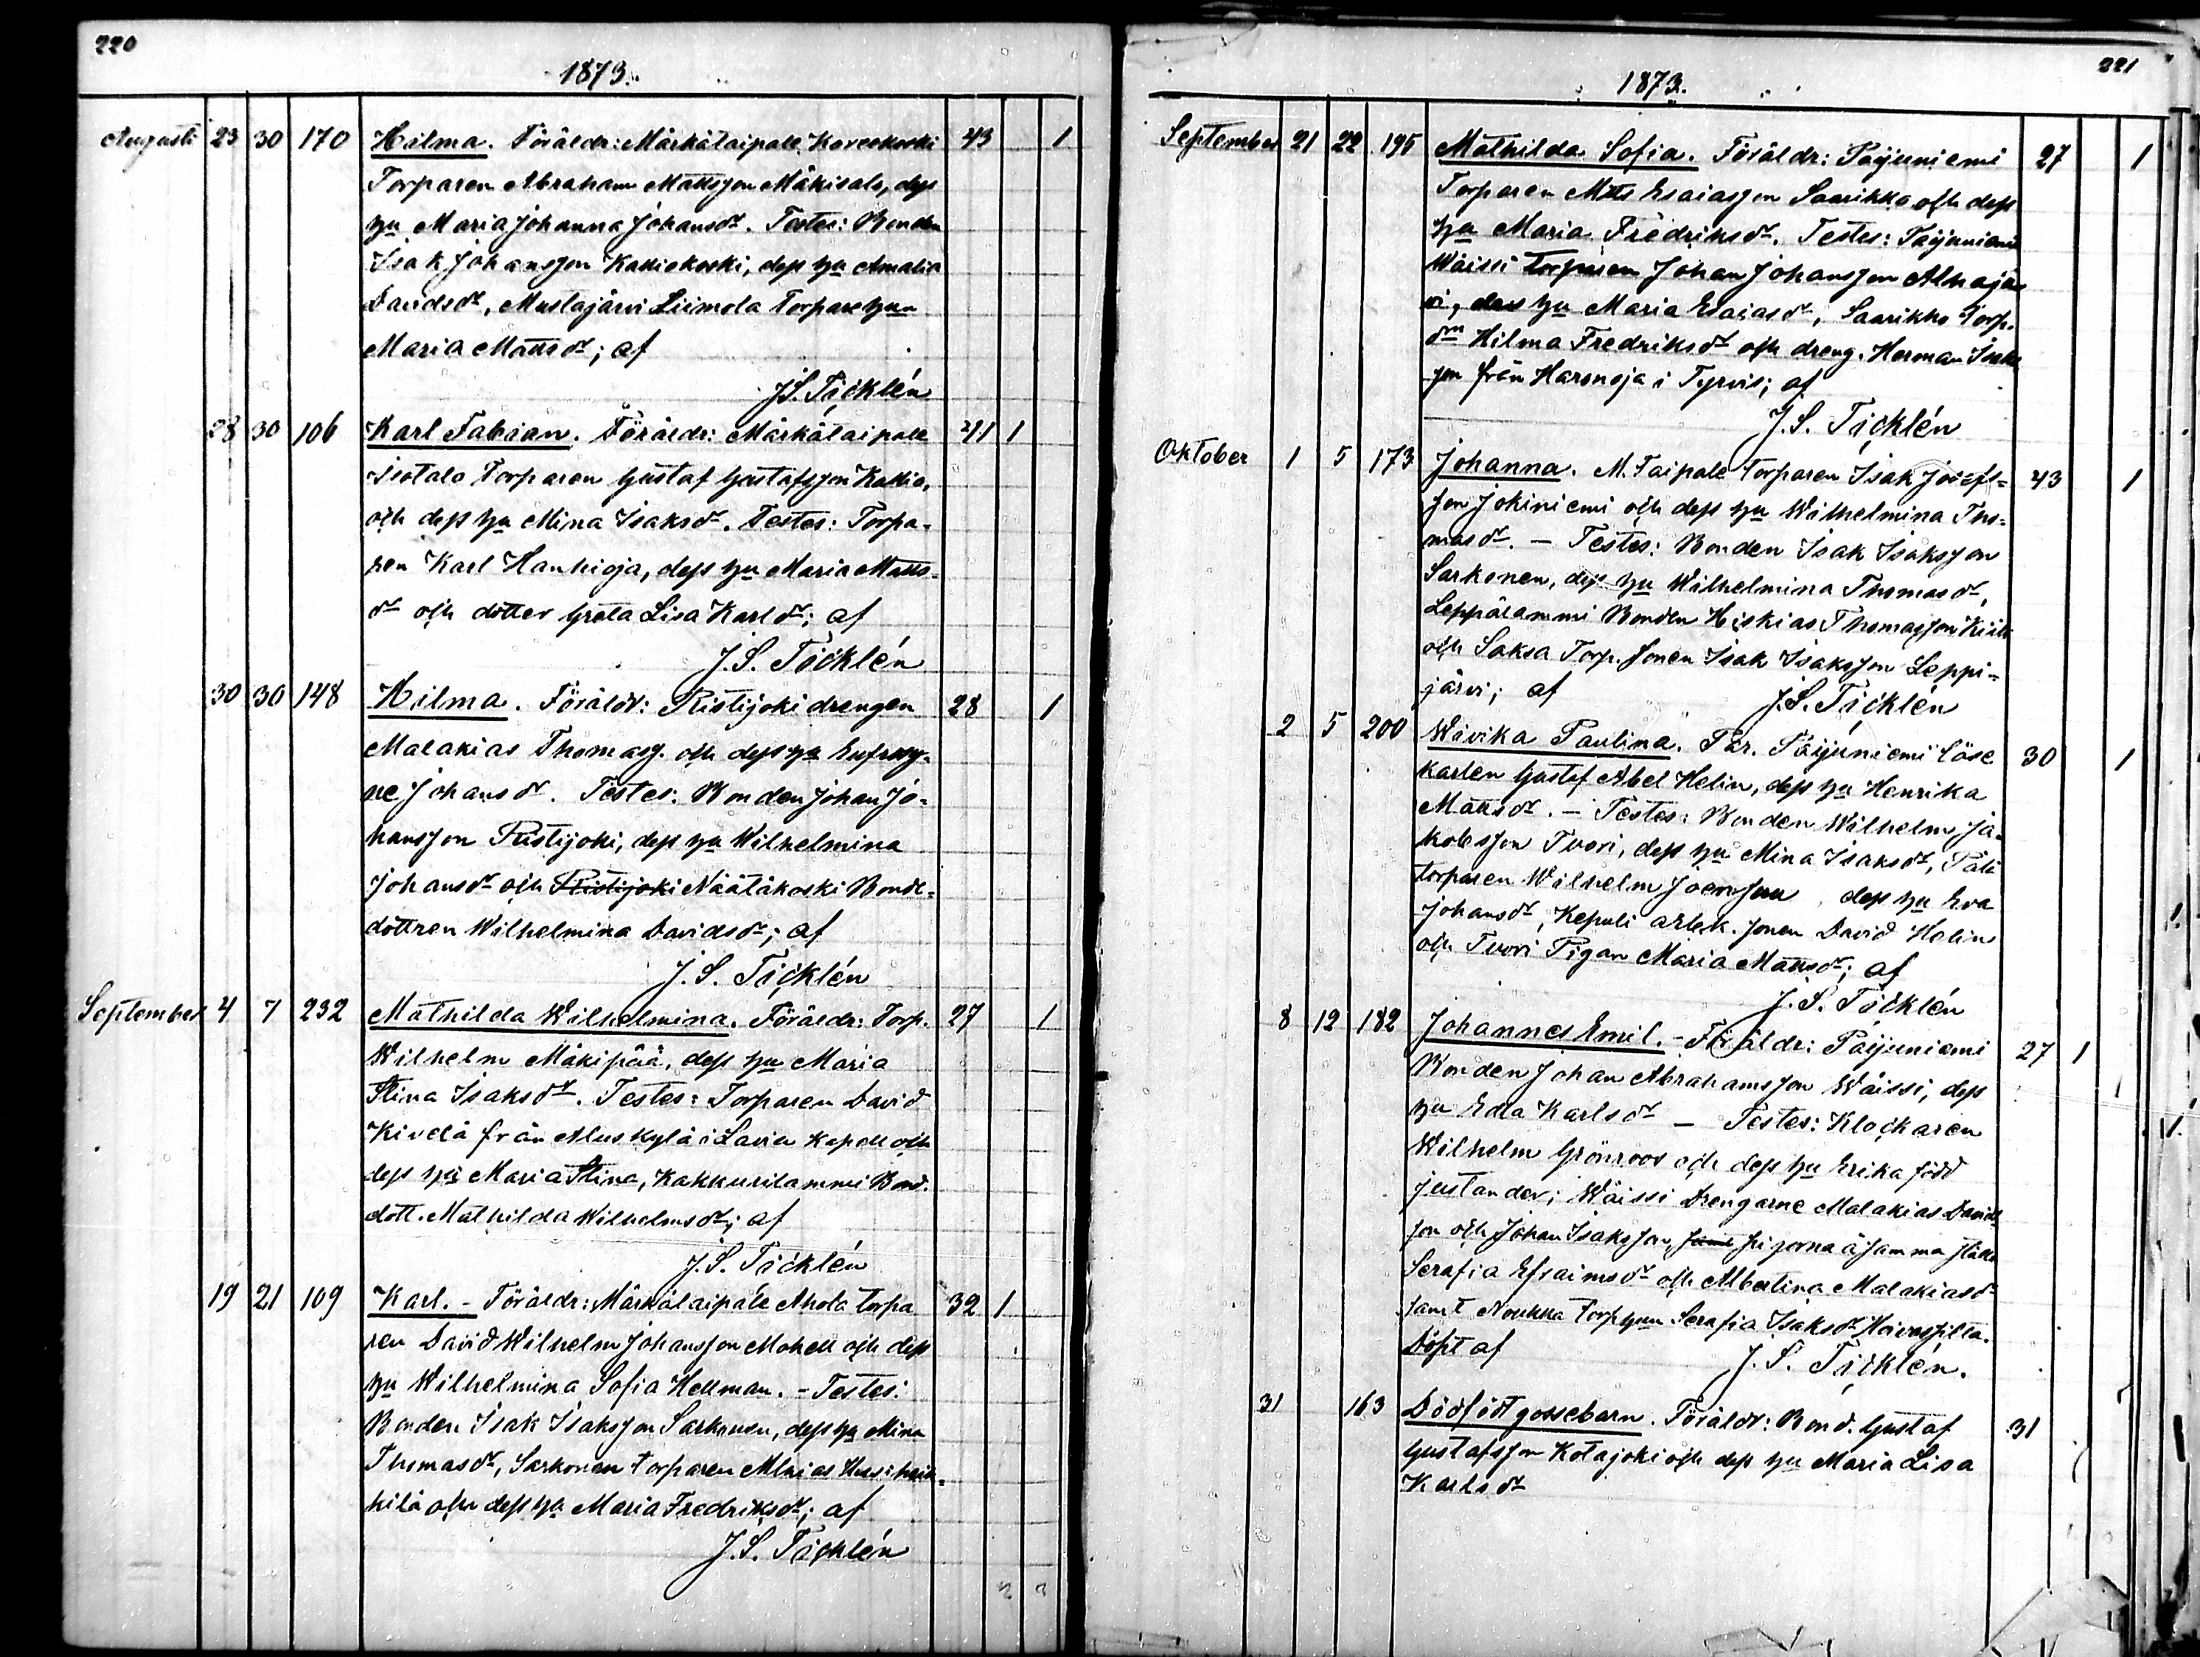 220
1873.
Augusti 23 30 170 Hilma. Föräldr: Märkätaipale Koreekoski 43 1
Torparen Abraham Mattsson Mäkisalo, dess
hu Maria Johanna Johansdr. Testes: Bonden
Isak Johansson Kalliokoski, dess hu Amalia
Davidsdr, Mustajärvi Liimola Torparehun
Maria Mattsdr; af
J.S. Täcklén
28 30 106 Karl Fabian. Föräldr: Märkätaipale 41 1
Isotalo Torparen Gustaf Gustafsson Kallio,
och dess hu Mina Isaksdr. Testes: Torpa-
ren Karl Hanhioja, dess hu Maria Matts-
dr och dotter Greta Lisa Karldr; af
J.S. Täcklén
30 30 148 Hilma. Föräldr: Ristijoki drengen 28 1
Malakias Thomass. och dess hu Eufrosy-
ne Johansdr. Testes: Bonden Johan Jo-
hansson Ristijoki, dess hu Wilhelmina
Johansdr och Ristijoki Näätäkoski Bonde-
dottren Wilhelmina Davidsdr; af
J.S. Täcklén
September 4 7 232 Mathilda Wilhelmina. Föräldr: Torp. 27 1
Wilhelm Mäkipää, dess hu Maria
Stina Isaksdr. Testes: Torparen David
Kivelä från Aluskylä i Lavia Kapell och
dess hu Maria Stina, Kakkurilammi Bond.
dott. Mathilda Wilhelmsdr; af
J.S. Täcklén
19 21 109 Karl. - Föräldr: Märkätaipale Ahola torpa 32 1
ren David Wilhelm Johansson Mohell och dess
hu Wilhelmina Sofia Hellman. - Testes:
Bonden Isak Isaksson Sarkonen, dess hu Mina
Thomasdr, Sarkonen torparen
kilä och dess hu Maria Fredriksdr; af
J.S. Täcklén
221
1873.
September 21 22 195 Mathilda Sofia. Föräldr: Päijuniemi 27 1
Torparen Matts Esaiasson Saarikko och dess
hu Maria Fredriksdr. Testes: Päijuniemi
Wäissi torparen Johan Johansson Alhajär
vi, dess hu Maria Esaiasdr, Saarikko Torp.
drn Hilma Fredriksdr och dreng. Herman Isaks
son från Haronoja i Tyrvis; af
J.S. Täcklén
Oktober 1 5 173 Johanna. M. Taipale torparen Isak Josefs- 43 1
son Jokiniemi och dess hu Wilhelmina Tho-
masdr. - Testes: Bonden Isak Isaksson
Sarkonen, dess hu Wilhelmina Thomasdr,
Leppälammi Bonden Hiskias Thomasson
och Saksa Torp. sonen Isak Isaksson Leppi-
järvi; af J.S. Täcklén
2 5 200 Wivika Paulina. För. Päijuniemi löse 30 1
karlen Gustaf Abel Helin, dess hu Henrika
Mattsdr. - Testes: Bonden Wilhelm Ja-
kobsson Tuori, dess hu Mina Isaksdr,
torparen Wilhelm dess hu Eva
Johansdr, Kepuli sonen David Helin
och Tuori Pigan Maria Mattsdr; af
J.S. Täcklén
8 12 182 Johannes Emil. - Föräldr: Päijuniemi 27 1
Bonden Johan Abrahamsson Wäissi, dess
hu Edla Karlsdr - Testes: Klockaren
Wilhelm Grönroos och dess hu Erika född
Justander; Wäissi Drengarne Malakias Davids
son och Johan Isaksson, samt pigorna å samma ställe
Serafia Efraimsdr och Albertina Malakiasdr
samt Noukka torphun Serafia Isaksdr
Döpt af J.S. Täcklén.
31 163 Dödfödt gossebarn. Föräldr: Bond. Gustaf 31
Gustafsson Kotajoki och dess hu Maria Lisa
Karlsdr